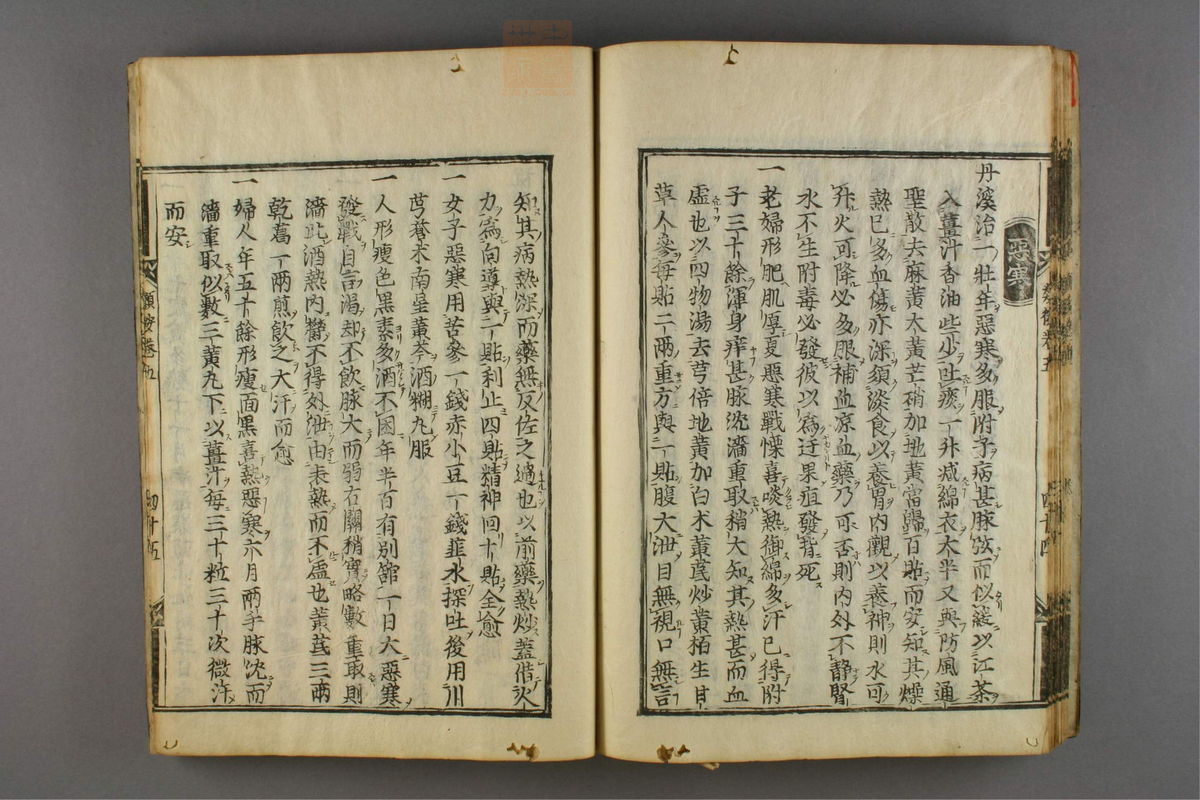 惡寒
丹溪治一壯年惡寒多服附子病甚脉弦而似緩以江茶
入薑汁香油些少吐痰一升减綿衣太半又與防風通
聖散去麻黃大黃芒硝加地黃當歸百貼而安知其燥
熱已多血傷亦深須淡食以養胃內觀以養神則水可
升火可降必多服補血凉血藥乃可否則內外不靜腎
水不生附毒必發彼以為迂果疽發背死
一老婦形肥肌厚夏惡寒戰慄喜啖熱御綿多汗已得附
子三十餘渾身痒甚脉沈濇重取稍大知其熱甚而血
虛也以四物湯去芎倍地黃加白术黃芪炒黃栢生甘
草人參每貼二兩重方與一貼腹大泄目無視口無言
知其病熱深而藥無反佐之過也以前藥熱炒蓋借火
力為向導與一貼利止四貼精神回十貼全愈
一女子惡寒用苦參一錢赤小豆一錢韭水探吐後用川
芎蒼术南星黃芩酒糊丸服
一人形瘦色黑素多酒不困年半百有別舘一日大惡寒
發戰自言渴却不飲脉大而弱右關稍實略數重取則
濇此酒熱內欝不得外泄由表熱而不虛也黃芪三兩
乾葛一兩煎飲之大汗而愈
一婦人年五十餘形瘦面黑喜熱惡寒六月兩手脉沈而
濇重取似數三黃丸下以薑汁每三十粒三十次微汗
而安